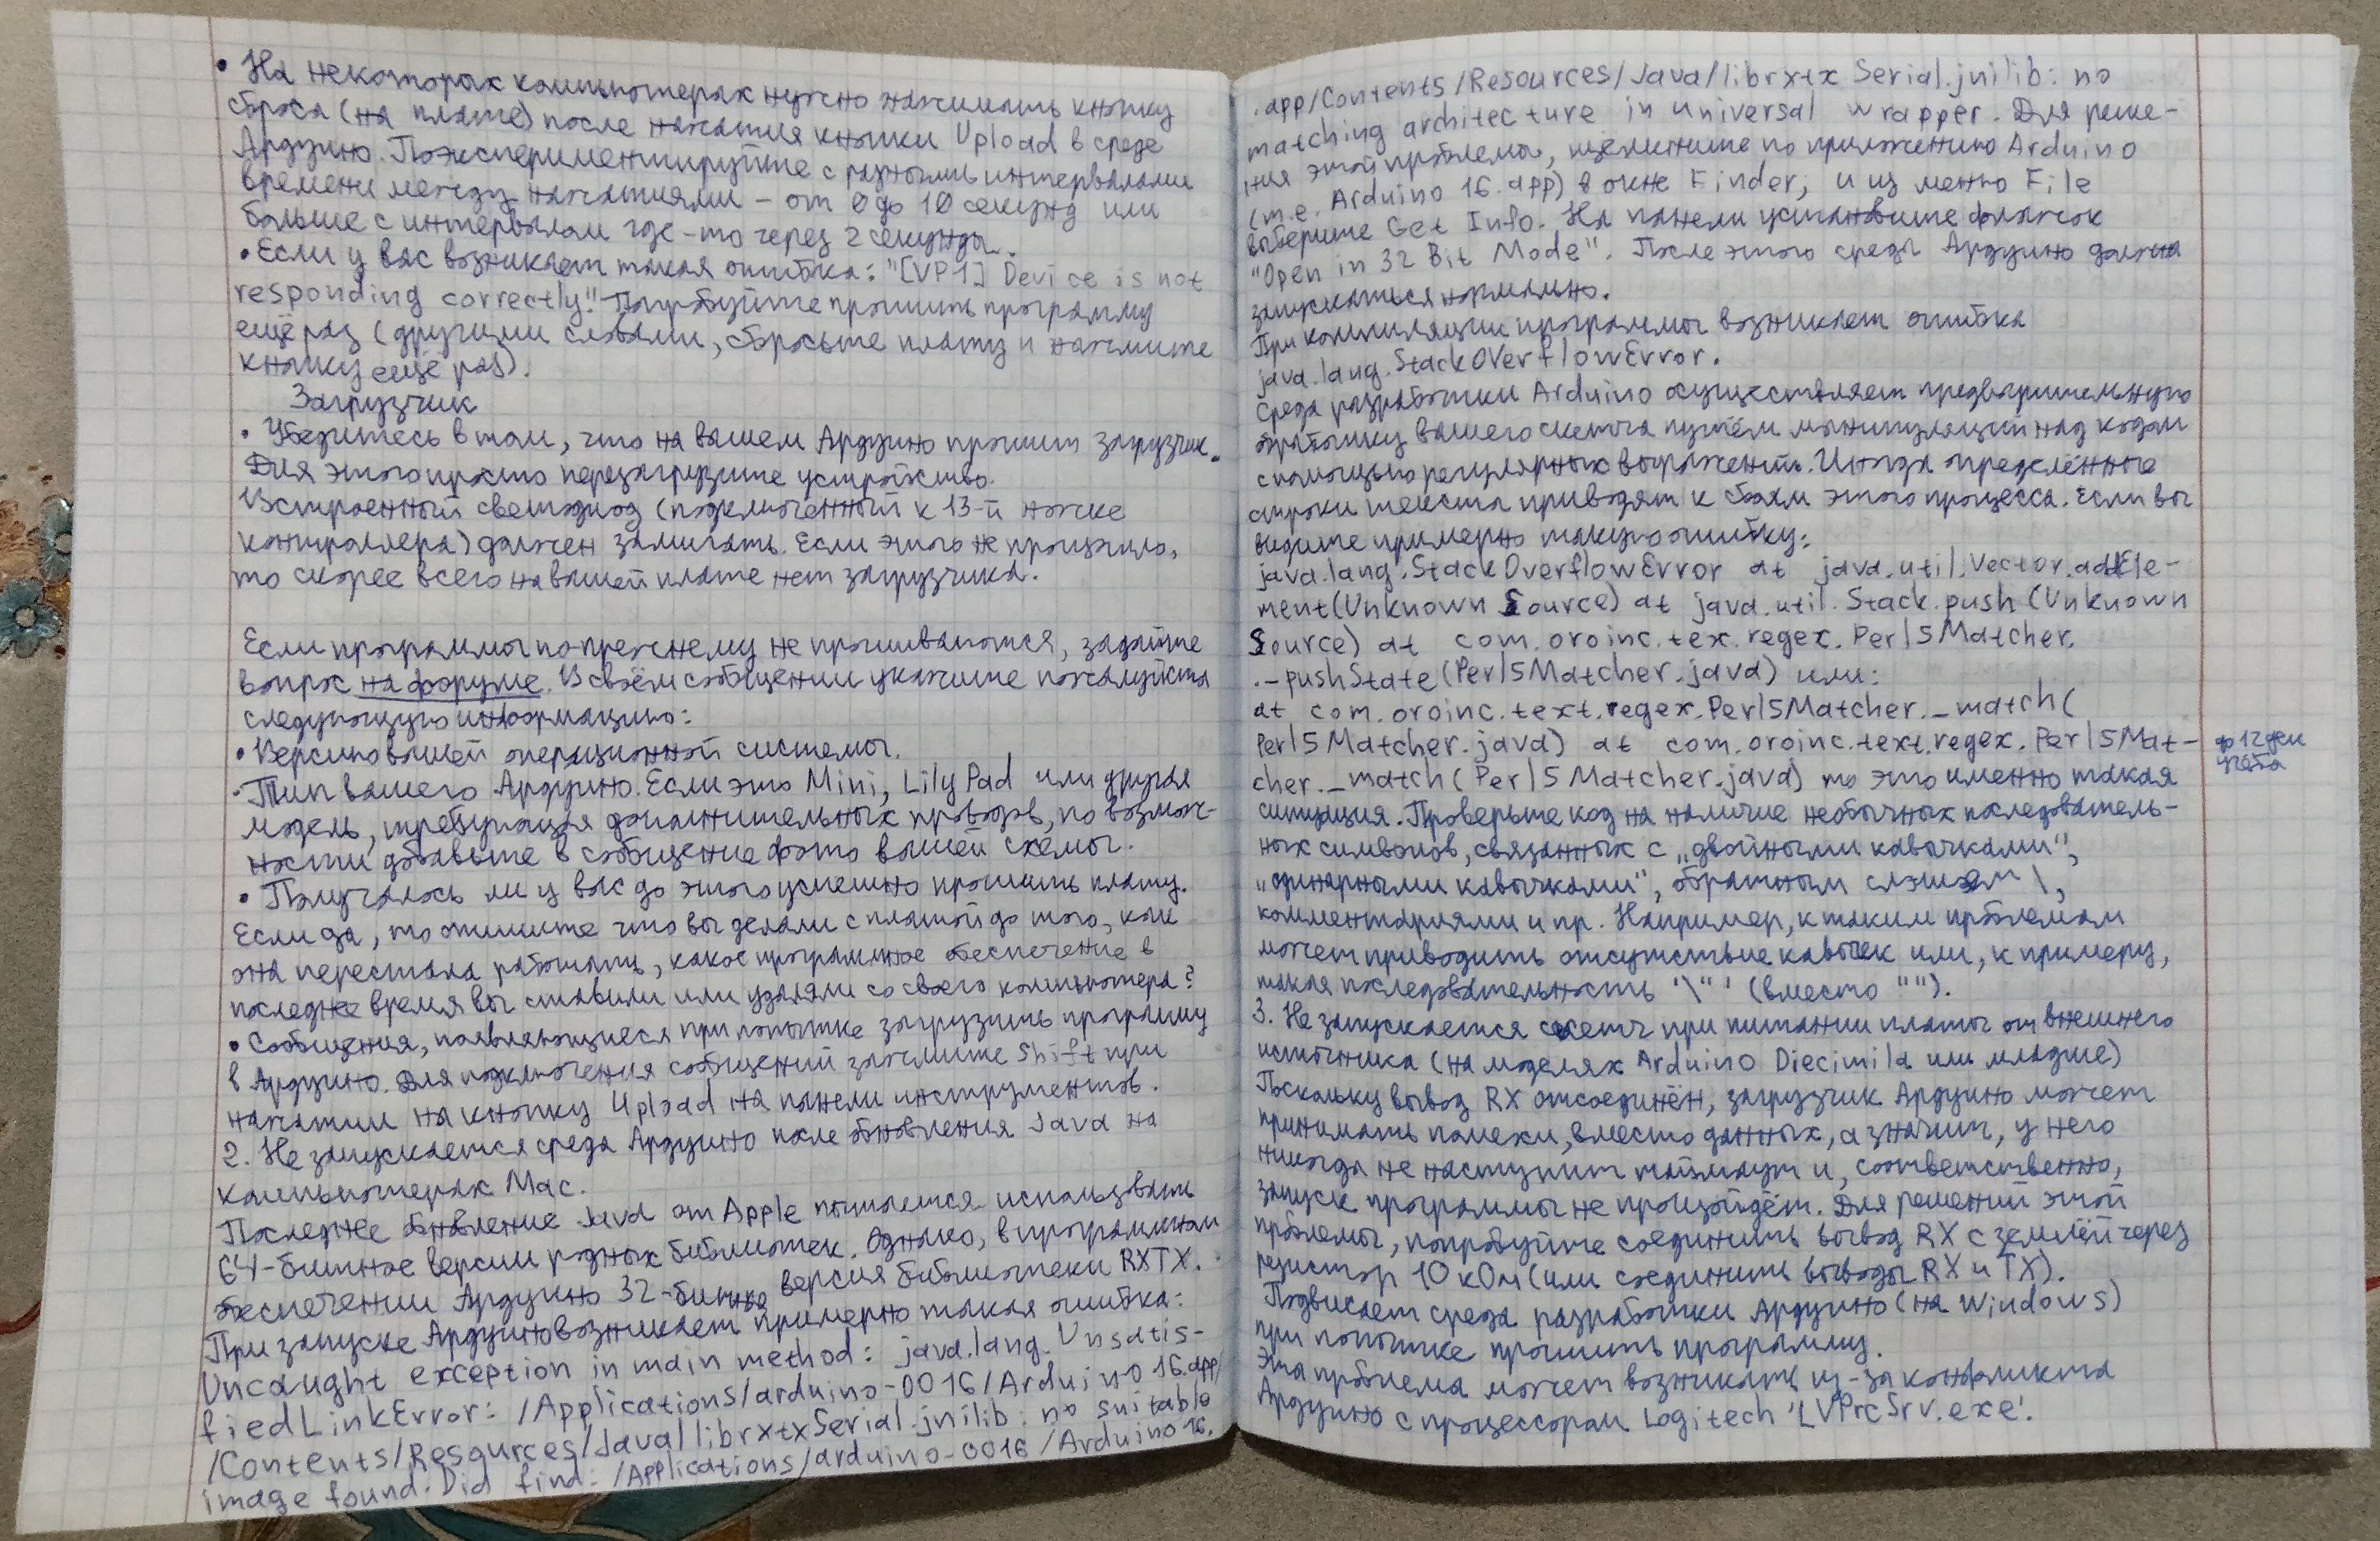 • На некоторых компьютерах нужно нажимать кнопку
сброса (на плате) после нажатия кнопки Upload в среде
Ардуино. Поэкспериментируйте с разными интервалами
времени между нажатиями – от 0 до 10 секунд или
больше с интервалом где-то через 2 секунды.
• Если у вас возникает такая ошибка: "[VP1] Device is not
responding correctly". Попробуйте прошить программу
ещё раз (другими словами, сбросьте плату и нажмите
кнопку ещё раз).
Загрузчик
• Убедитесь в том, что на вашем Ардуино прошит загрузчик.
Для этого просто перезагрузите устройство.
Встроенный светодиод (подключённый к 13-й ножке
контроллера) должен замигать. Если этого не произошло,
то скорее всего на вашей плате нет загрузчика.
Если программы по-прежнему не прошиваются, задайте
вопрос на форуме. В своём сообщении укажите пожалуйста
следующую информацию:
• Версию вашей операционной системы.
• Тип вашего Ардуино. Если это Mini, LilyPad или другая
модель, требующая дополнительных проводов, по возмож-
ности добавьте в сообщение фото вашей схемы.
• Получалось ли у вас до этого успешно прошить плату.
Если да, то опишите что вы делали с платой до того, как
она перестала работать, какое программное обеспечение в
последнее время вы ставили или удаляли со своего компьютера?
• Сообщения, появляющиеся при попытке загрузить программу
в Ардуино. Для подключения сообщений зажмите Shift при
нажатии на кнопку Upload на панели инструментов.
2. Не запускается среда Ардуино после обновления Java на
компьютерах Mac.
Последнее обновление Java от Apple пытается использовать
64-битное версии родных библиотек. Однако, в программном
обеспечении Ардуино 32-битная версия библиотеки RXTX.
При запуске Ардуино возникает примерно такая ошибка:
Uncaught exception in main method: java.lang.Unsatis-
fiedLinkError: /Applications/arduino-0016/Arduino 16.app/
/Contents/Resources/Java/librxtxSerial.jnilib: no suitable
image found. Did find: /Applications/arduino-0016/Arduino 16.
.app/Contents/Resources/Java/librxtx Serial.jnilib: no
matching architecture in universal wrapper. Для реше-
ния этой проблемы, щелкните по приложению Arduino
(т.е. Arduino 16.app) в окне Finder, и из меню File
выберите Get Info. На панели установите флажок
"Open in 32 Bit Mode". После этого среда Ардуино должна
запускаться нормально.
При компиляции программы возникает ошибка
java.lang.StackOverflowError.
Среда разработки Arduino осуществляет предварительную
обработку вашего скетча путём манипуляций над кодом
с помощью регулярных выражений. Иногда определённые
строки текста приводят к сбоям этого процесса. Если вы
видите примерно такую ошибку:
java.lang.StackOverflowError at java.util.Vector.addEle-
ment(Unknown Source) at java.util.Stack.push (Unknown
Source) at com.oroinc.tex.regex.Perl5Matcher.
._pushState(Perl5Matcher.java) или:
at com.oroinc.text.regex.Perl5Matcher._match(
Perl5Matcher.java) at com.oroinc.text.regex.Perl5Mat-
cher._match(Perl5Matcher.java) то это именно такая
ситуация. Проверьте код на наличие необычных последователь-
ных символов, связанных с „двойными кавычками",
„одинарными кавычками", обратным слэшем \,
комментариями и пр. Например, к таким проблемам
может приводить отсутствие кавычек или, к примеру,
такая последовательность '\" ' (вместо "").
3. Не запускается скетч при питании платы от внешнего
источника (на моделях Arduino Diecimila или младше)
Поскольку вывод RX отсоединён, загрузчик Ардуино может
принимать помехи, вместо данных, а значит, у него
никогда не наступит таймаут и, соответственно,
запуск программы не произойдёт. Для решений этой
проблемы, попробуйте соединить вывод RX с землёй через
резистор 10 кОм (или соединить выводы RX и TX).
Подвисает среда разработки Ардуино (на Windows)
при попытке прошить программу.
Эта проблема может возникать из-за конфликта
Ардуино с процессором Logitech 'LVPrcSrv.exe'.